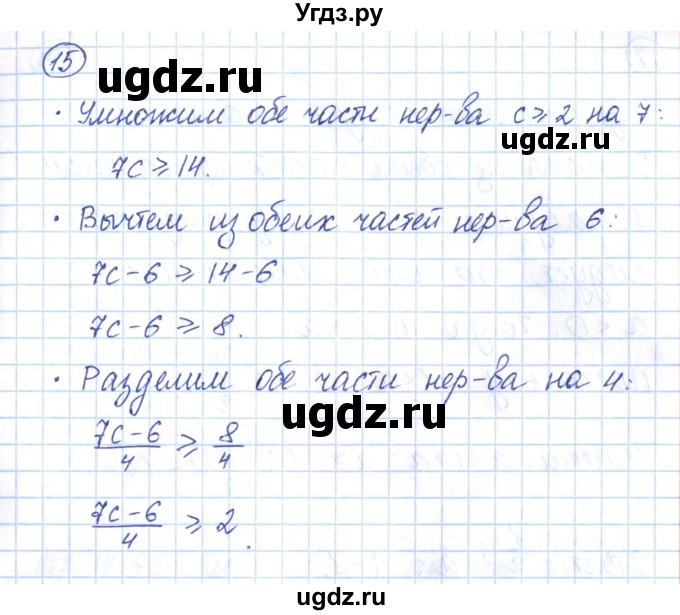 Угдз.ру
15
ugdz.ru
· Умножим обе части нер-ва c ⩾ 2 на 7:
7c ⩾ 14.
· Вычтем из обеих частей нер-ва 6:
7c − 6 ⩾ 14 − 6
ugdz.ru
7c − 6 ⩾ 8.
· Разделим обе части нер-ва на 4:
(7c − 6)/4 ⩾ 8/4
ugdz.ru
(7c − 6)/4 ⩾ 2.
ugdz.ru